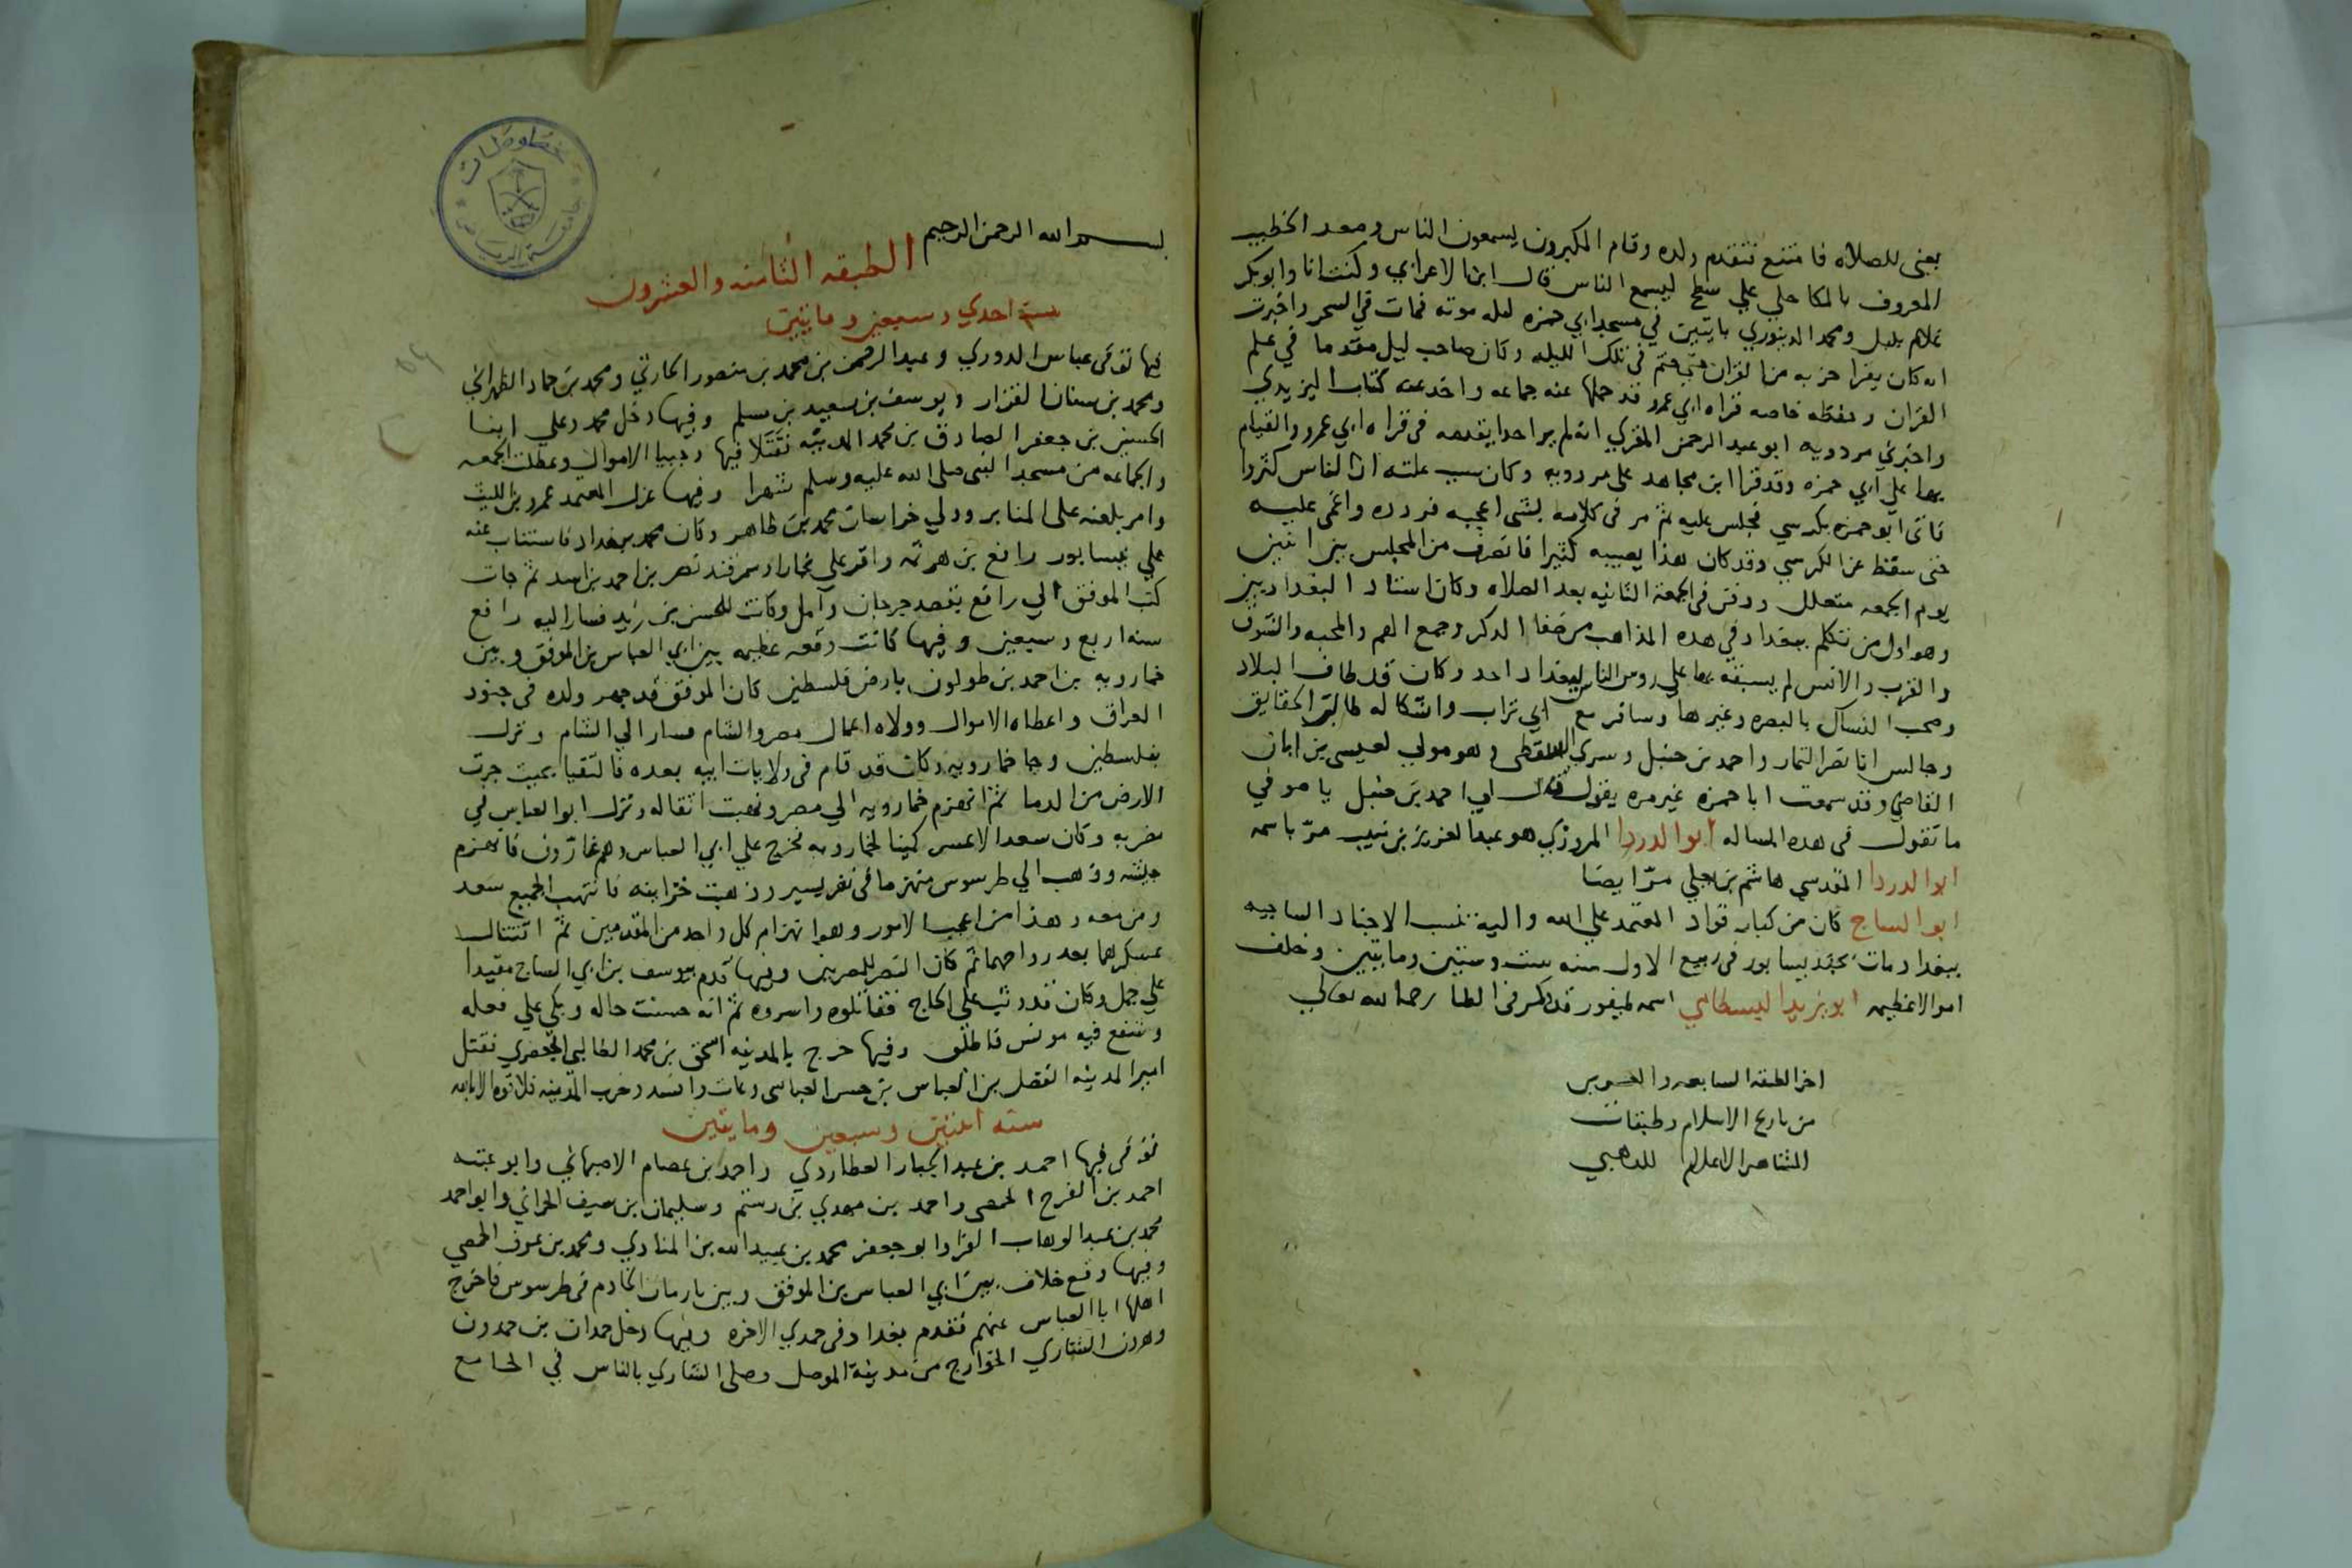 يعني للصلاه فامتنع فتقدم ولده وقام المكبرون يسمعون الناس وصعد الخطيب
المعروف بالمكاحلي علي سطح ليسمع الناس قال ابن الاعرابي وكنت انا وابوبكر
غلام بلبل ومحمد الدينوري بايتين في مسجد ابي حمزه ليله موته فمات في السحر واخبرت
انه كان يقرا حزبه من القران حتي ختم في تلك الليله وكان صاحب ليل مقدما في علم
القران وحفظه خاصه قراه ابي عمرو قد حملها عنه جماعه واخذ عنه كتاب اليزيدي
واخبرني مردويه ابو عبد الرحمن المقري انه لم ير احدا يقدمه في قراه ابي عمرو والقيام
بها علي ابي حمزه وقد قرا ابن مجاهد علي مردويه وكان سبب علته ان الناس كثروا
فاتي ابو حمزه بكرسي فجلس عليه ثم مر في كلامه بشي اعجبه فردده واغمي عليه
حتي سقط عن الكرسي وقد كان هذا يصيبه كثيرا فانصرف من المجلس بين اثنين
يوم الجمعه متعلل ودفن في الجمعة الثانيه بعد الصلاه وكان استاد البغداديين
وهو اول من تكلم ببغداد في هذه المذاهب من صفا الذكر وجمع الهم والمحبه والشوق
والقرب والانس لم يسبقه بها علي روس الناس ببغداد احد وكان قد طاف البلاد
وصحب النساك بالبصره وغيرها وسافر مع ابي تراب واشكاله طالبي الحقايق
وجالس ابا نصر التمار واحمد بن حنبل وسري السقطي وهو مولي لعيسي بن ابان
القاضي وقد سمعت ابا حمزه غير مره يقول قال لي احمد بن حنبل يا صوفي
ما تقول في هذه المساله ابو الدردا المروزي هو عبد العزيز بن منيب مرّ باسمه
ابو الدردا المقدسي هاشم بن يعلي مرّ ايضا
ابو الساج كان من كبار قواد المعتمد علي الله واليه تنسب الاجناد الساجيه
ببغداد مات بجندیسابور في ربيع الاول سنه ست وستين ومايتين وخلف
اموالا عظيمه ابو يزيد البسطامي اسمه طيفور قد ذكر في الطا رحمه الله تعالي
اخر الطبقه السابعه والعشرين
من تاريخ الاسلام وطبقات
المشاهير الاعلام للذهبي
بسم الله الرحمن الرحيم الطبقه الثامنه والعشرون
سنة احدي وسبعين ومايتين
فيها توفي عباس الدوري وعبد الرحمن بن محمد بن منصور الحارثي ومحمد بن حماد الظهراني
ومحمد بن سنان القزار ويوسف بن سعيد بن مسلم وفيها دخل محمد وعلي ابنا
الحسين بن جعفر الصادق بن محمد المدينه فقتلا فيها وجبيا الاموال وعطلت الجمعه
والجماعه من مسجد النبي صلي الله عليه وسلم شهرا وفيها عزل المعتمد عمرو بن الليث
وامر بلعنه علي المنابر وولي خراسان محمد بن طاهر وكان محمد ببغداد فاستناب عنه
علي نيسابور رافع بن هرثمه واقر علي بخارا وسمرقند نصر بن احمد بن اسد ثم جات
كتب الموفق الي رافع بقصد جرجان وآمل وكانت للحسن بن زيد فسار اليه رافع
سنه اربع وسبعين وفيها كانت وقعه عظيمه بين ابي العباس بن الموفق وبين
خمارويه بن احمد بن طولون بارض فلسطين كان الموفق قد جهز ولده في جنود
العراق واعطاه الاموال وولاه اعمال مصر والشام فسار الي الشام ونزل
بفلسطين وجا خمارويه وكان قد قام في ولايات ابيه بعده فالتقيا بحيث جرت
الارض من الدما ثم انهزم خمارويه الي مصر ونهبت اثقاله ونزل ابو العباس في
مضربه وكان سعد الاعسر كمينا لخمارويه فخرج علي ابي العباس وهم غارّون فانهزم
جيشه وذهب الي طرسوس منهزما في نفر يسير وذهبت خزاينه فانتهب الجميع سعد
ومن معه وهذا من اعجب الامور وهو انهزام كل واحد من المقدمين ثم اقتتال
عسكرهما بعد رواحهما ثم كان النصر للمصريين وفيها قدم بيوسف بن ابي الساج مقيدا
علي جمل وكان قد وثب علي الحاج فقاتلوه واسروه ثم انه حسنت حاله وبكي علي فعله
وشفع فيه مونس فاطلق وفيها خرج بالمدينه اسحق بن محمد الطالبي الجعفري فقتل
امير المدينه الفضل بن العباس بن حسن العباسي وعاث وافسد وخرب المدينه فلا قوه الا بالله
سنه اثنتين وسبعين ومايتين
توفي فيها احمد بن عبد الجبار العطاردي واحمد بن عصام الاصبهاني وابو عتبه
احمد بن الفرج الحمصي واحمد بن مهدي بن رستم وسليمان بن سيف الحراني وابو احمد
محمد بن عبد الوهاب الفرا وابو جعفر محمد بن عبيد الله بن المنادي ومحمد بن عوف الحمصي
وفيها وقع خلاف بين ابي العباس بن الموفق وبين يازمان الخادم في طرسوس فاخرج
اهلها ابا العباس عنهم فقدم بغداد في جمدي الاخره وفيها دخل حمدان بن حمدون
وهرون الشاري الخوارج من مدينة الموصل وصلي الشاري بالناس في الجامع
مخطوطات
جامعة الرياض